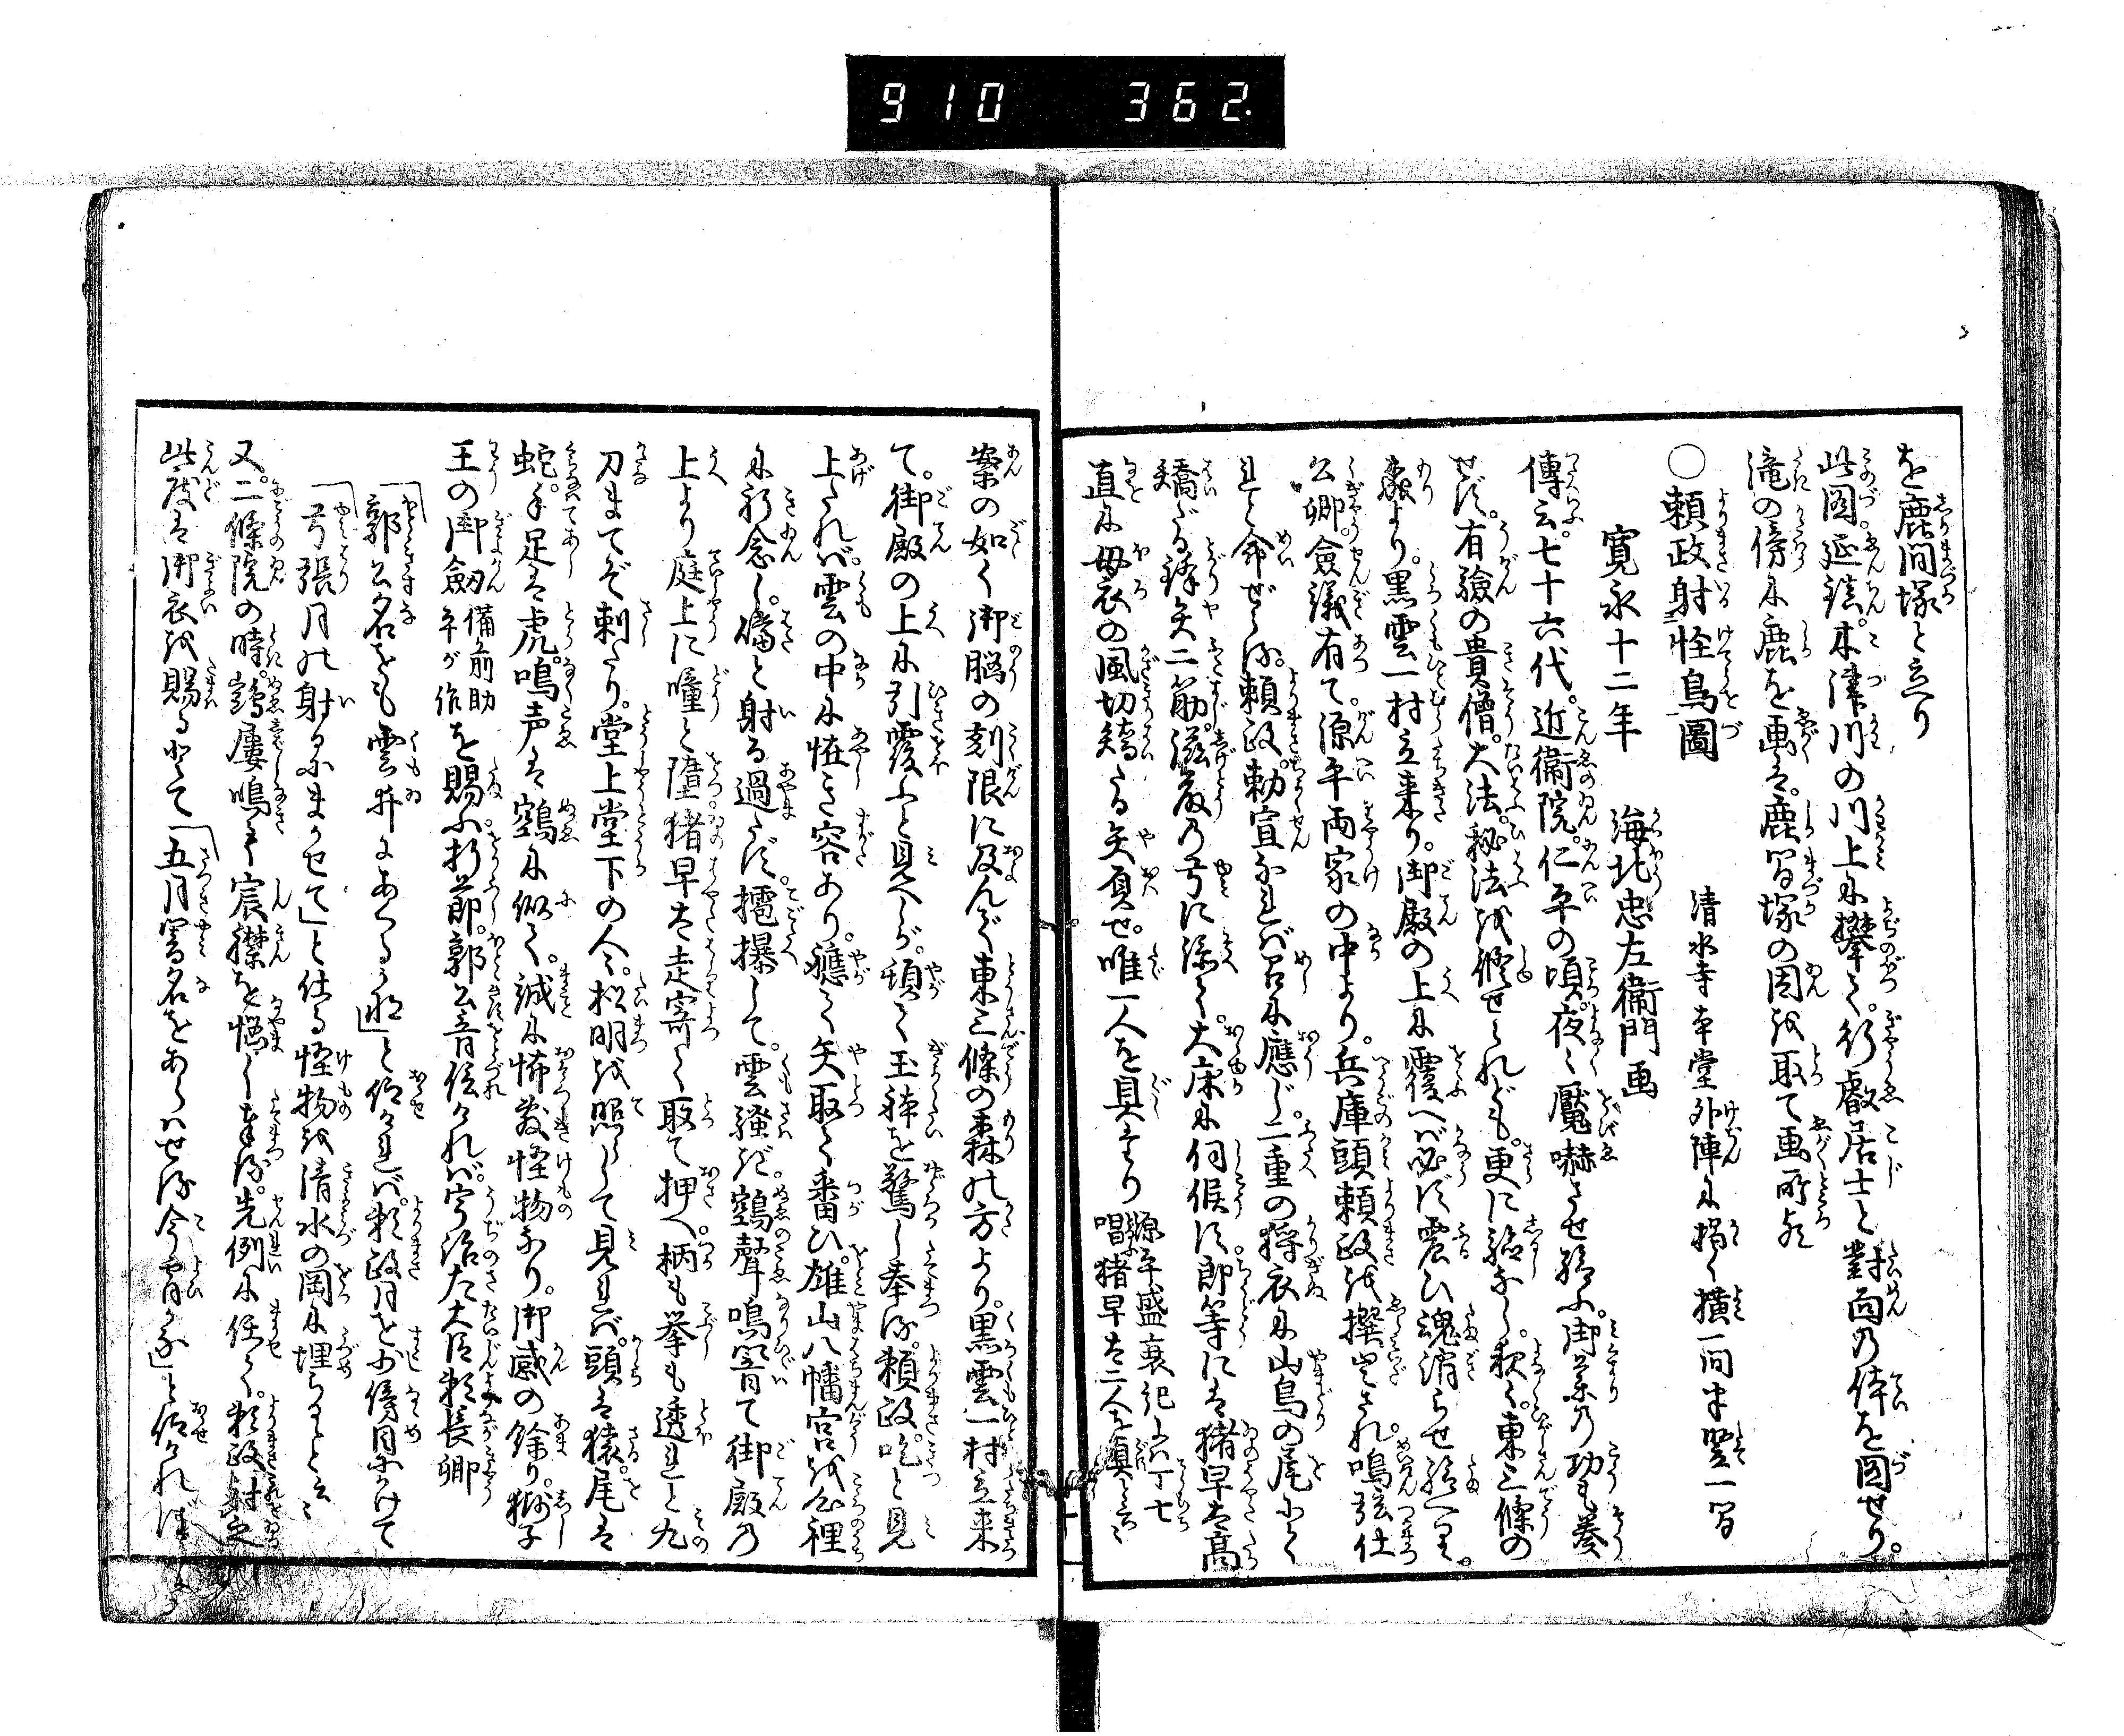 910 362.
を鹿間塚と立へり
此図延鎮。木津川の川上に攀て。行叡居士と對面の侍を図せり。
滝の傍に鹿を画は。鹿間塚の因を取て画所歟
○頼政射怪鳥圖
清水寺本堂外陣に掲く横一間半竪一間
寛永十二年 海北忠左衞門画
傳云。七十六代。近衞院。仁平の頃。夜々魘嚇させ給ふ。御薬の功も奏
せず。有驗の貴僧。大法。秘法を修せられども。更に詔なし。秋く。東三條の
森より。黒雲一村立来り。御殿の上に覆へば必ず震ひ魂消らせ給へり。
公卿。僉議有て。源平両家の中より。兵庫頭頼政を撰出され。鳴弦仕
れと命ぜらる。頼政。勅宣なれバ召に應じ。二重の狩衣に山鳥の尾にて
矯だる鋒矢二筋。滋籐の弓に添て。大床に伺候す。郎等にハ猪早太高
直に母衣の風切矯たる矢負せ。唯一人を具たり 源平盛衰記にハ丁七唱猪早太二人を具と云々
案の如く御脳の刻限に及んで東三條の森の方より。黒雲一村立来
て。御殿の上に引覆ふと見へしが。頓て玉体を驚し奉る。頼政。屹と見
上られバ雲の中に恠き容あり。軈て矢取て番ひ。雄山八幡宮を心裡
に祈念し。礑と射る過たず。擂撲して。雲騒ぎ。鵼聲鳴響て御殿の
上より庭上に噇と墮。猪早太走寄て取て押へ。柄も拳も透れと九
刀まてぞ刺たり。堂上堂下の人々。松明を照して見れバ。頭ハ猿。尾ハ
蛇。手足ハ虎。鳴声ハ鵼に似て。誠に怖敷怪物なり。御感の餘り。獅子
王の御劔 備前助平が作 を賜ふ折節。郭公音信けれバ。宇治左大臣頼長卿
「郭公名をも雲井にあくる哉」と仰けれバ。頼政月を少傍目にかけて
「弓張月の射るにまかせて」と仕る怪物を清水の岡に埋らると云々
又。二條院の時。鵼屢鳴て宸襟を悩し奉る。先例に任て。頼政射之
此度ハ御衣を賜るとて「五月闇名をあらハせる今宵かな」と仰けれバ